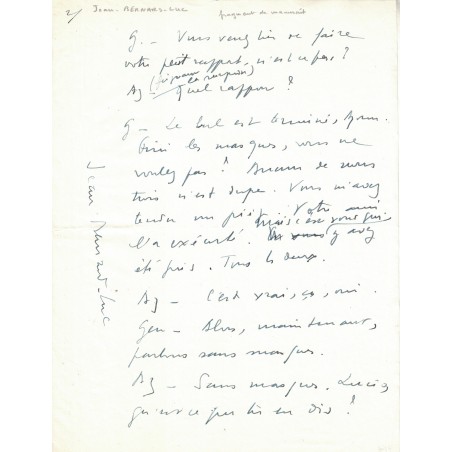 2/ Jean-BERNARD-LUC
fragment de manuscrit
G. – Vous venez de faire
votre petit rapport, n'est-ce pas ?
Ag – Quel rapport ?
G – Le bal est terminé,
Fini les masques, vous ne
voulez pas ? Aucun de nous
trois n'est dupe. Vous m'avez
tendu un piège. Votre amie
l'a exécuté. Mais c'est vous qui y avez
été pris. Tous les deux.
Ag – C'est vrai, ça, oui.
Gen – Alors, maintenant,
parlons sans masques.
Ag – Sans masques. Lucien,
qu'est-ce que tu en dis ?
Jean Bernard-Luc